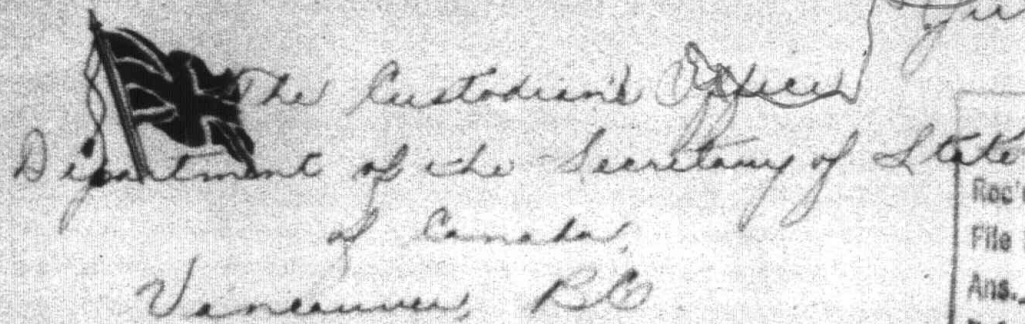 The Custodian's Office
Department of the Secretary of State
of Canada,
Vancouver, BC
Rec'd
File
Ans.